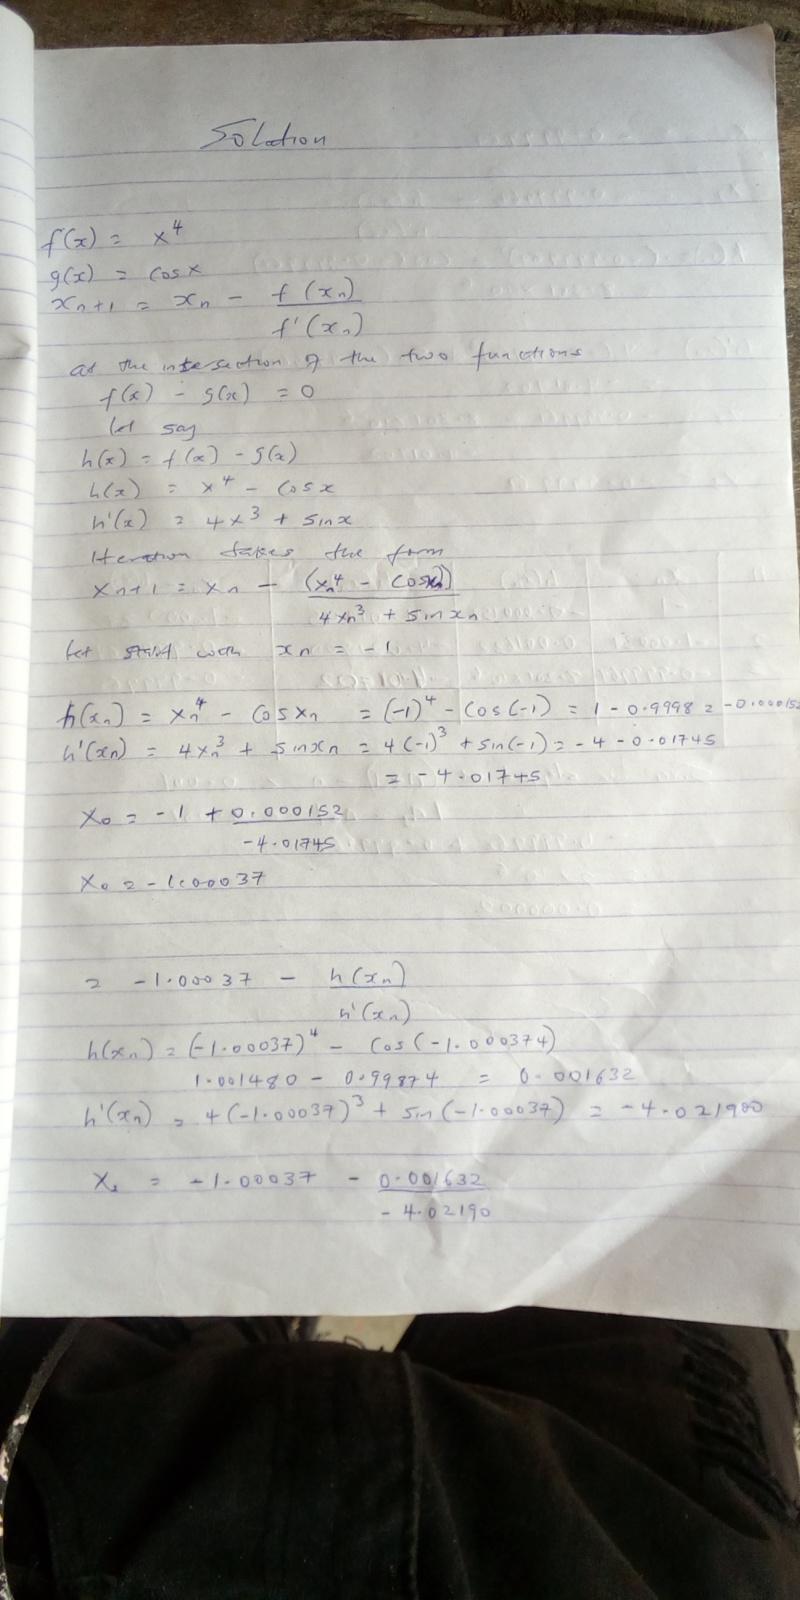 Solution
f(x) = x⁴
g(x) = cosx
xn+1 = xn - f(xn)/f'(xn)
at the intersection of the two functions
f(x) - g(x) = 0
let say
h(x) = f(x) - g(x)
h(x) = x⁴ - cosx
h'(x) = 4x³ + sinx
Iteration takes the form
xn+1 = xn - (xn⁴ - cosxn)/4xn³ + sinxn
let start with xn = -1
h(xn) = xn⁴ - cosxn = (-1)⁴ - cos(-1) = 1 - 0.9998 = -0.000152
h'(xn) = 4xn³ + sinxn = 4(-1)³ + sin(-1) = -4 - 0.01745
= -4.01745
x₀ = -1 + 0.000152/-4.01745
x₀ = -1.00037
= -1.00037 - h(xn)/h'(xn)
h(xn) = (-1.00037)⁴ - cos(-1.000374)
1.001480 - 0.99874 = 0.001632
h'(xn) = 4(-1.00037)³ + sin(-1.00037) = -4.021900
x₁ = -1.00037 - 0.001632/-4.02190